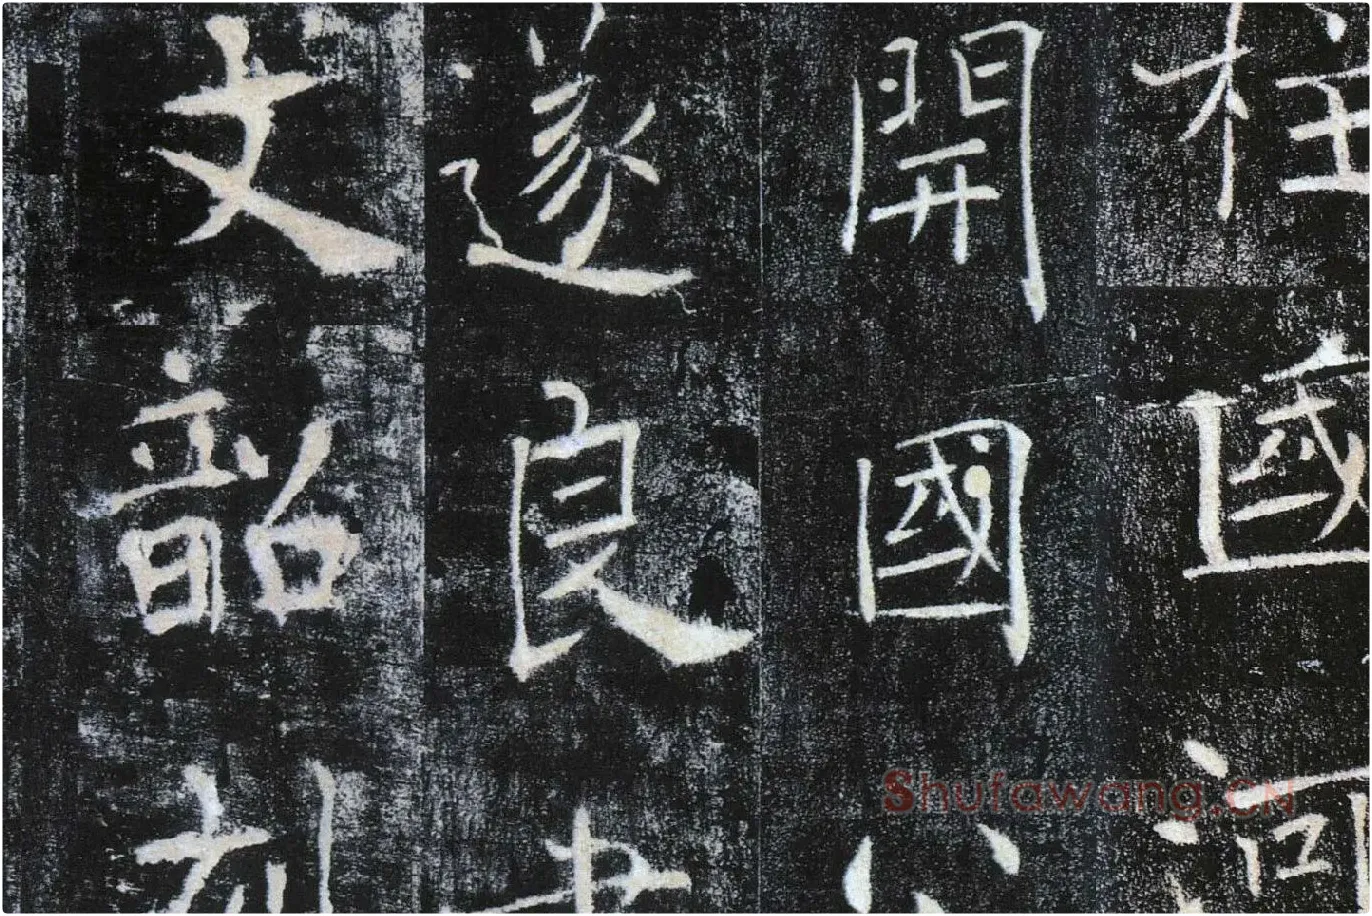 柱國河
開國公
遂良書
文韶刻
Shufawang.CN